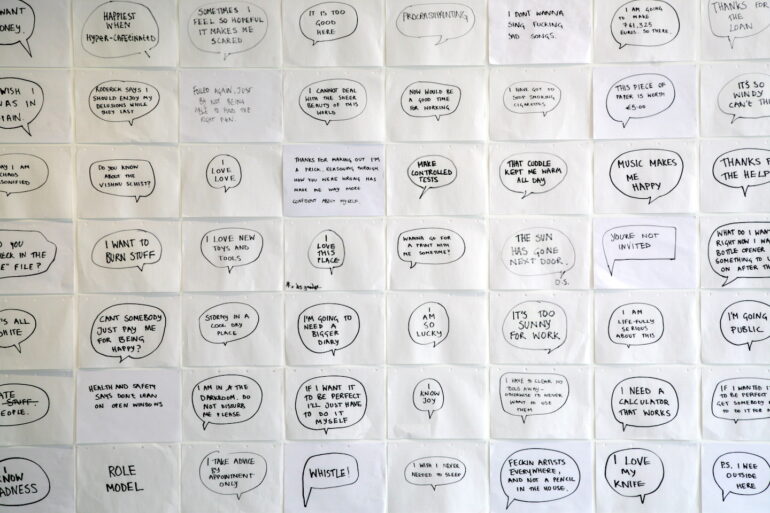 WANT
MONEY.
HAPPIEST
WHEN
HYPER-CAFFEINATED
SOMETIMES I
FEEL SO HOPEFUL
IT MAKES ME
SCARED
IT IS TOO
GOOD
HERE
PROCRASHPRINTING
I DON'T WANNA
SING FUCKING
SAD SONGS.
I AM GOING
TO MAKE
741,325
EUROS. SO THERE.
THANKS FOR
THE
LOAN
WISH I
WAS IN
RODERICK SAYS I
SHOULD ENJOY MY
DELUSIONS WHILE
THEY LAST
FOILED AGAIN, JUST
BY NOT BEING
ABLE TO FIND THE
RIGHT PEN.
I CANNOT DEAL
WITH THE SHEER
BEAUTY OF THIS
WORLD
NOW WOULD BE
A GOOD TIME
FOR WORKING
I HAVE GOT TO
STOP SMOKING
CIGARETTES
THIS PIECE OF
PAPER IS WORTH
€5.00
IT'S SO
WINDY
CAN'T
I AM
CHAOS
DO YOU KNOW
ABOUT THE
VISHNU SCHIST?
I
LOVE
LOVE
THANKS FOR MAKING OUT I'M
A PRICK. REASONING THROUGH
HOW YOU WERE WRONG HAS
MADE ME WAY MORE
CONFIDENT ABOUT MYSELF.
MAKE
CONTROLLED
TESTS
THAT CUDDLE
KEPT ME WARM
ALL DAY
MUSIC MAKES
ME
HAPPY
THANKS FOR
THE HELP
YOU
CHECK IN THE
" FILE?
I WANT TO
BURN STUFF
I LOVE NEW
TOYS AND
TOOLS
I
LOVE
THIS
PLACE
WANNA GO FOR
A PRINT WITH
ME SOMETIME?
THE SUN
HAS GONE
NEXT DOOR.
D.S.
YOU'RE NOT
INVITED
WHAT DO I WANT
RIGHT NOW I WA
BOTTLE OPENER
SOMETHING TO
ON AFTER TH
IT'S ALL
WHITE
CAN'T SOMEBODY
JUST PAY ME
FOR BEING
HAPPY?
STORMY IN A
COOL DAY
PLACE
I'M GOING TO
NEED A
BIGGER
DIARY
I
AM SO
LUCKY
IT'S TOO
SUNNY
FOR WORK
I AM
LIFE-FULLY
SERIOUS
ABOUT THIS
I'M GOING
PUBLIC
STUFF
PEOPLE.
HEALTH AND SAFETY
SAYS DON'T LEAN
ON OPEN WINDOWS
I AM IN THE
DARKROOM. DO
NOT DISTURB
ME PLEASE
IF I WANT IT
TO BE PERFECT
I'LL JUST HAVE
TO DO IT
MYSELF
I
KNOW
JOY
I HAVE TO CLEAR
AWAY -
OTHERWISE I'D NEVER
WANT TO USE
THEM
I NEED A
CALCULATOR
THAT WORKS
IF I WANTED I
TO BE PERFECT
GET SOMEBODY
TO DO IT FOR
KNOW
MADNESS
ROLE
MODEL
I TAKE ADVICE
BY
APPOINTMENT
ONLY
WHISTLE!
I WISH I NEVER
NEEDED TO SLEEP
FECKIN ARTISTS
EVERYWHERE,
AND NOT A PENCIL
IN THE HOUSE.
I LOVE
MY
KNIFE
P.S. I WEE
OUTSIDE
HERE